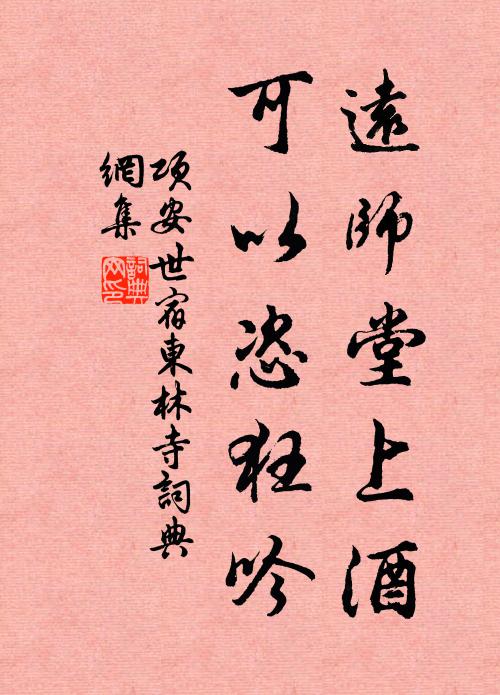 遠師堂上酒
可以恣狂吟
項安世宿東林寺詞典
網集
詞典
網印